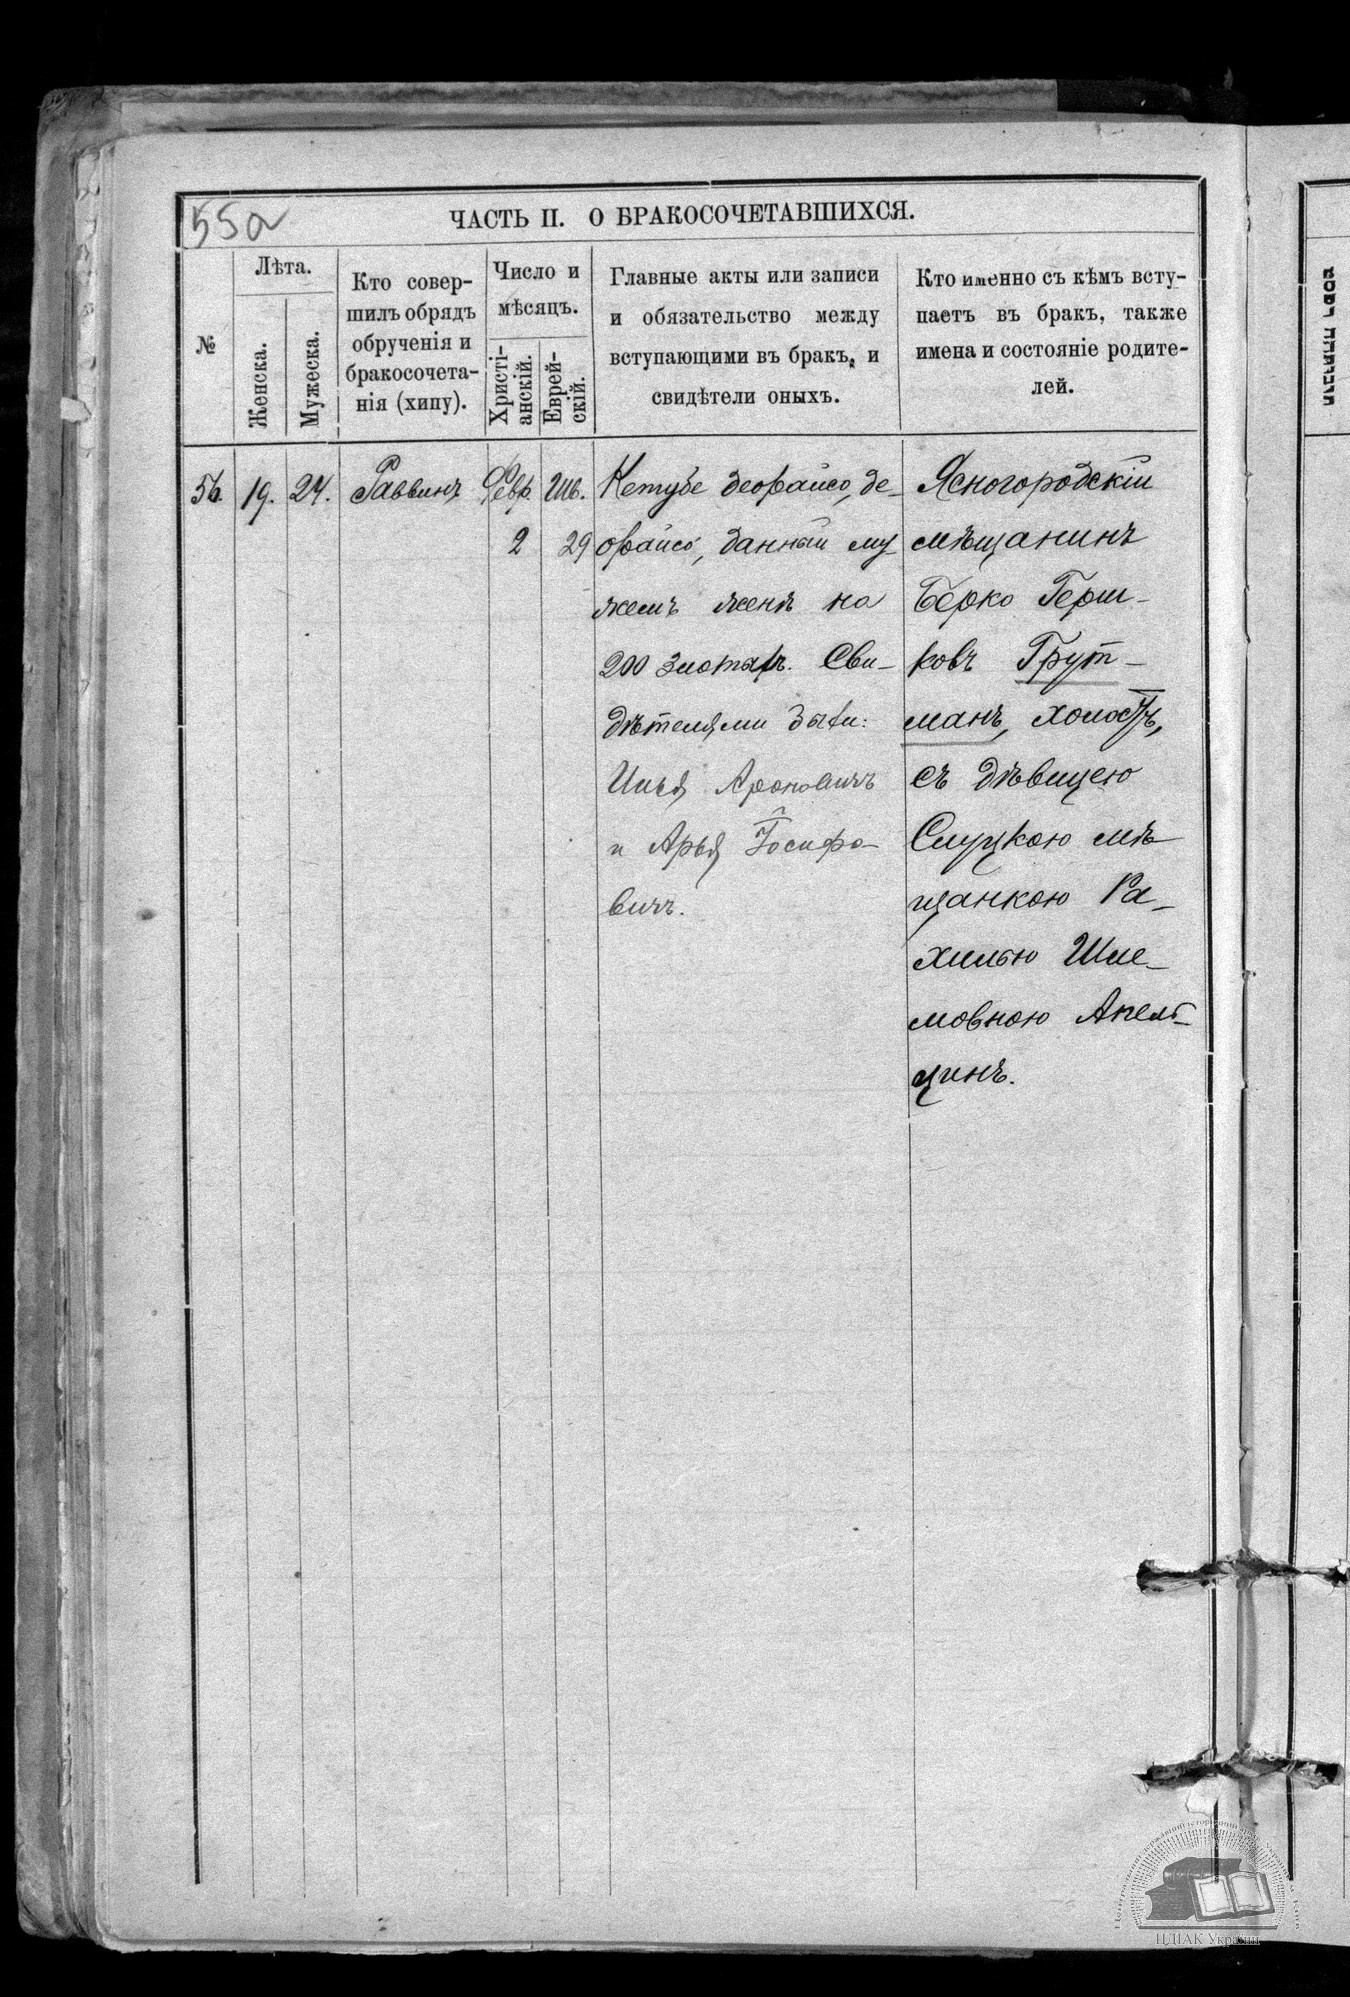 55а
ЧАСТЬ II. О БРАКОСОЧЕТАВШИХСЯ.
№
Лѣта.
Женска.
Мужеска.
Кто совер-
шилъ обрядъ
обрученія и
бракосочета-
нія (хипу).
Число и
мѣсяцъ.
Христі-
анскій.
Еврей-
скій.
Главные акты или записи
и обязательство между
вступающими въ бракъ, и
свидѣтели оныхъ.
Кто именно съ кѣмъ всту-
паетъ въ бракъ, также
имена и состояніе родите-
лей.
56.
19.
24.
Раввинъ
Февр.
2
Шв.
29
Кетубе деорайсо, де-
орайсо, данный му
жемъ женѣ на
200 злотыхъ. Сви-
дѣтелями были:
Илья Ароновичъ
и Арья Іосифо-
вичъ.
Ясногородскій
мѣщанинъ
Берко Герш-
ковъ Грут-
манъ, холостъ,
съ дѣвицею
Слуцкою мѣ
щанкою Ра-
хилью Шле-
мовною Апель-
цинъ.
ЦДІАК України